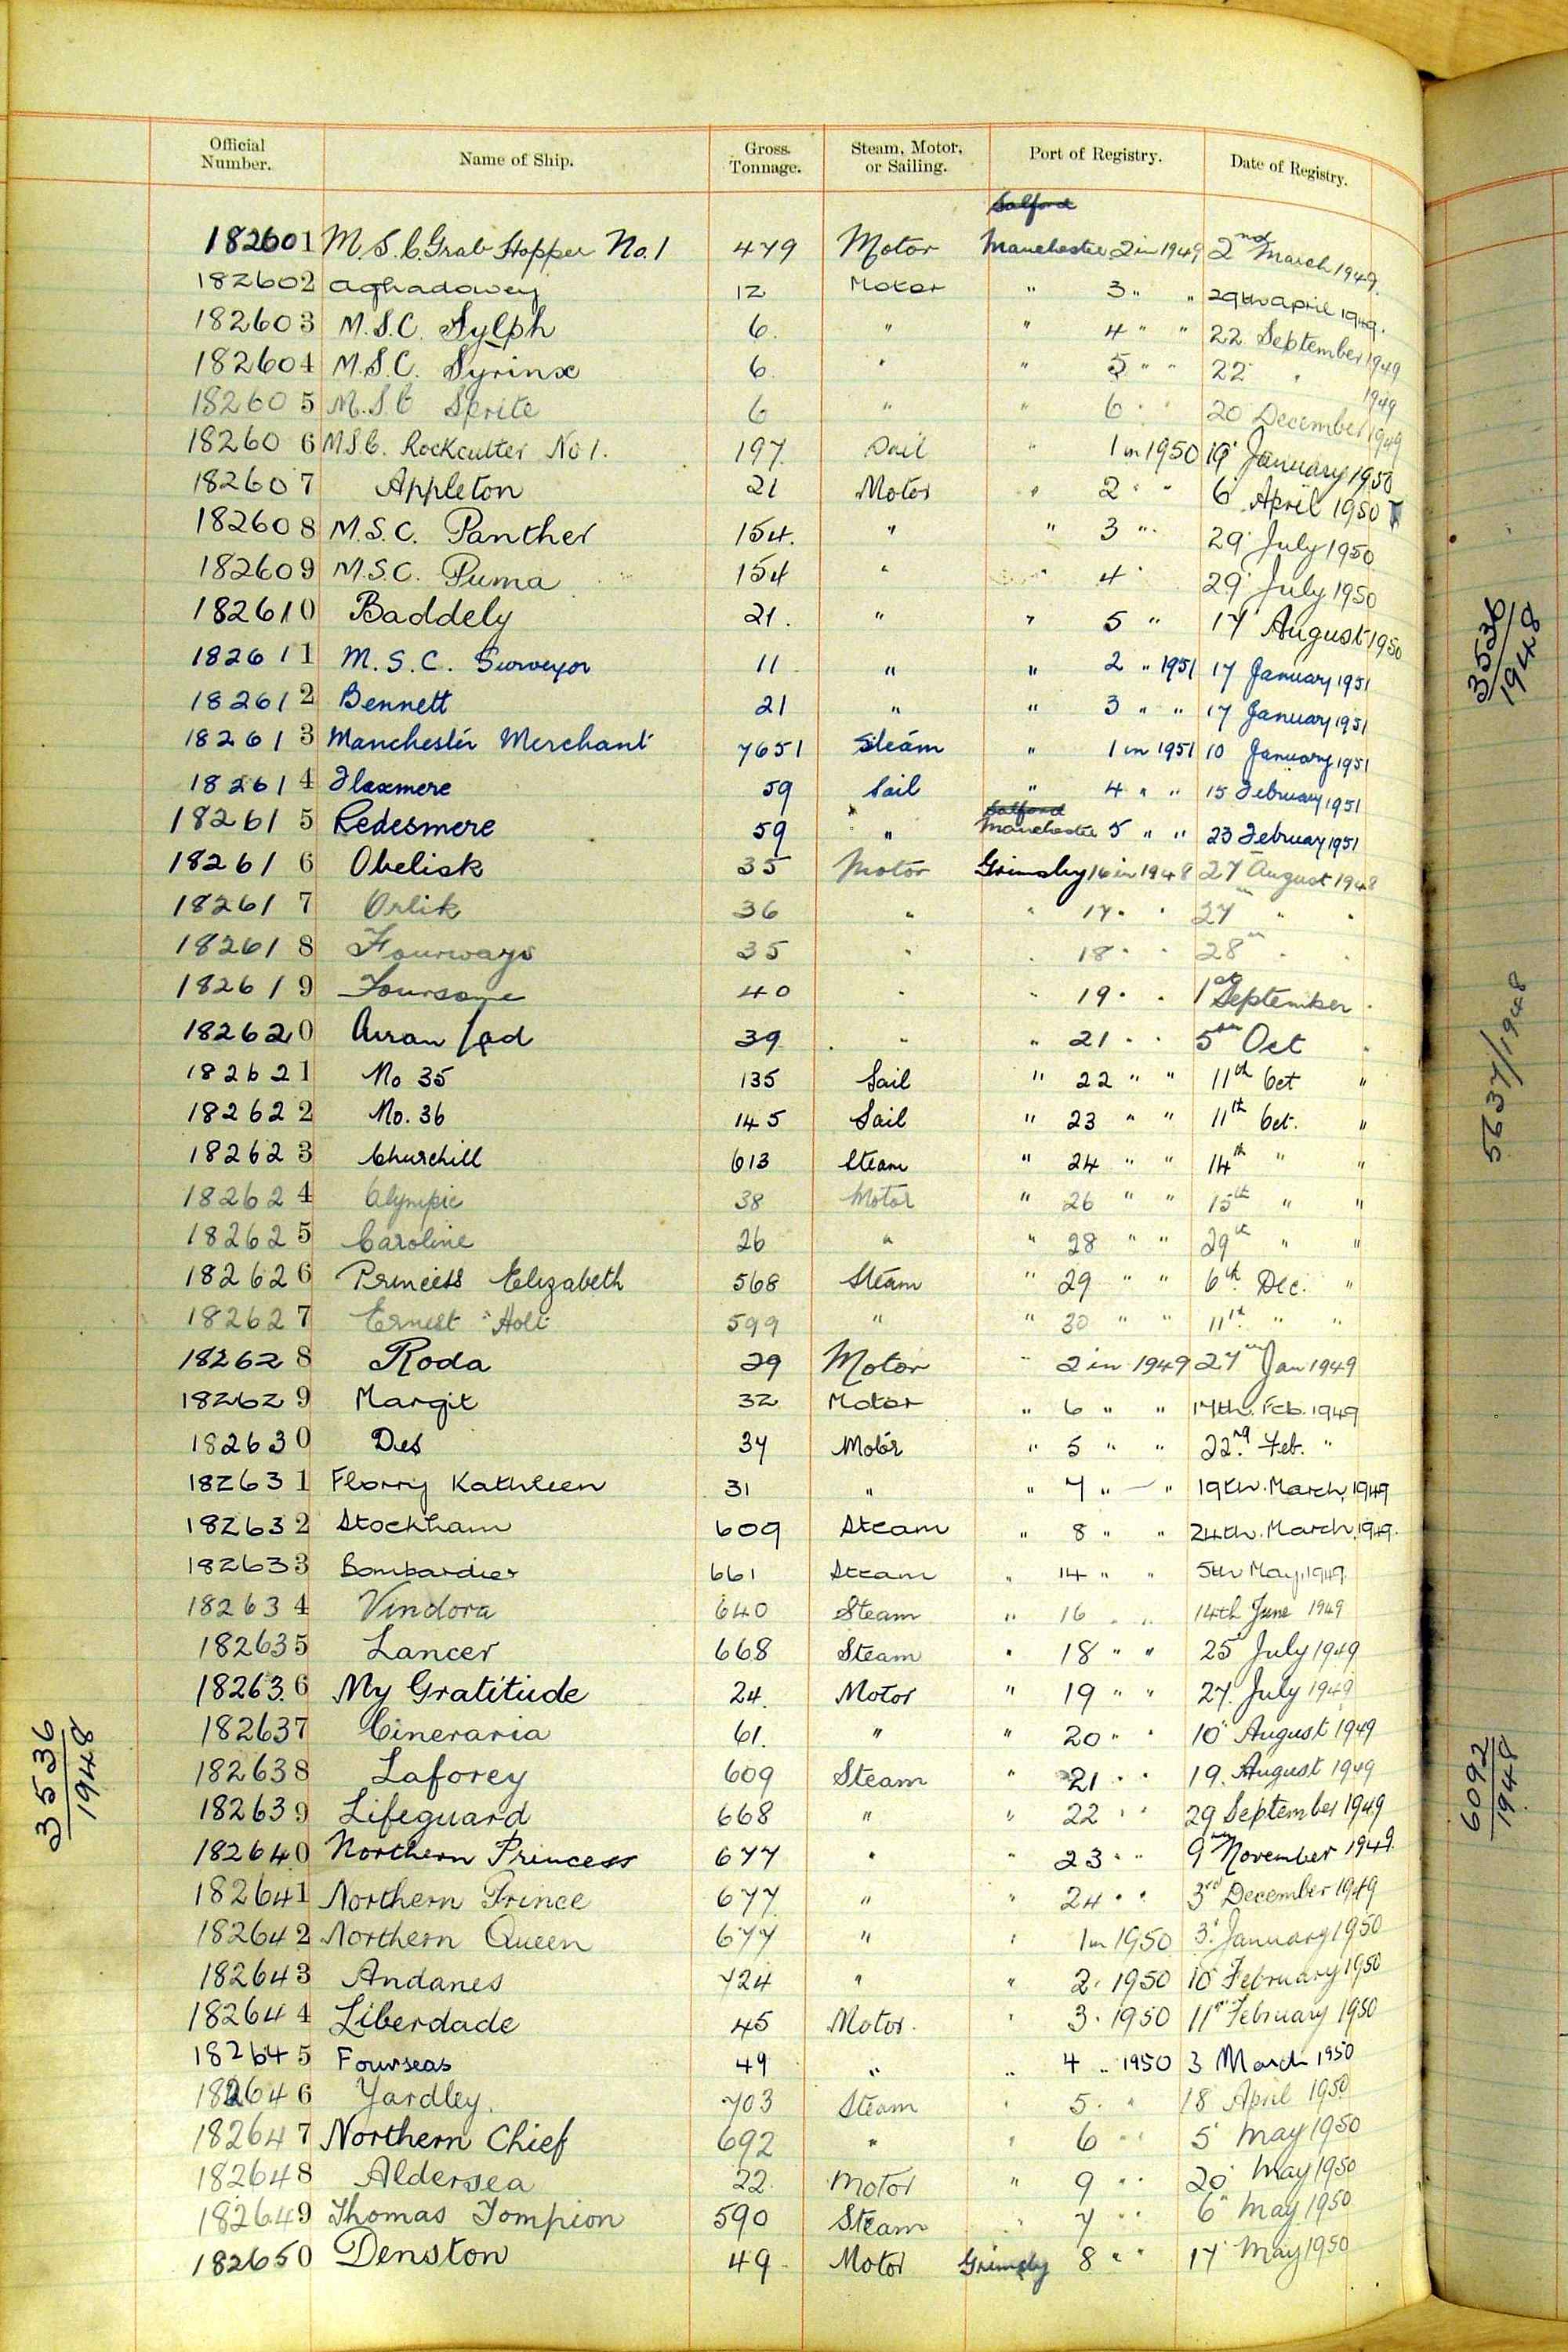 Official Number. Name of Ship. Gross. Tonnage. Steam, Motor, or Sailing. Port of Registry. Date of Registry.
Salford
182601 M.S.C. Grab Hopper No. 1 479 Motor Manchester 2 in 1949 2nd March 1949.
182602 Aghadowey 12 Motor " 3 " " 29th April 1949.
182603 M.S.C. Sylph 6. " " 4 " " 22 September 1949
182604 M.S.C. Syrinx 6 " " 5 " " 22 " 1949
182605 M.S.C Sprite 6 " " 6 " " 20 December 1949
182606 M.S.C. Rockcutter No 1. 197. Sail " 1 in 1950 19 January 1950
182607 Appleton 21 Motor " 2 " " 6 April 1950
182608 M.S.C. Panther 154. " " 3 " " 29 July 1950
182609 M.S.C. Puma 154 " " 4 " 29 July 1950
182610 Baddely 21. " " 5 " 17 August 1950
182611 M.S.C. Surveyor 11 " " 2 " 1951 17 January 1951
182612 Bennett 21 " " 3 " " 17 January 1951
182613 Manchester Merchant 7651 Steam " 1 in 1951 10 January 1951
182614 Flaxmere 59 Sail " 4 " " 15 February 1951
Salford
182615 Redesmere 59 " Manchester 5 " " 23 February 1951
182616 Obelisk 35 Motor Grimsby 16 in 1948 27 August 1948
182617 Orlik 36 " " 17 " " 27th " "
182618 Fourways 35 " " 18 " " 28th " "
182619 Foursome 40 " " 19 " " 1st September "
182620 Arran Lad 39 " " 21 " " 5th Oct "
182621 No 35 135 Sail " 22 " " 11th Oct "
182622 No. 36 145 Sail " 23 " " 11th Oct. "
182623 Churchill 613 Steam " 24 " " 14th " "
182624 Olympic 38 Motor " 26 " " 15th " "
182625 Caroline 26 " " 28 " " 29th " "
182626 Princess Elizabeth 568 Steam " 29 " " 6th Dec. "
182627 Ernest Holt 599 " " 30 " " 11th " "
182628 Roda 29 Motor " 2 in 1949 27th Jan 1949
182629 Margit 32 Motor " 6 " " 17th. Feb. 1949
182630 Des 34 Motor " 5 " " 22nd Feb. "
182631 Florry Kathleen 31 " " 7 " " 19th. March, 1949
182632 Stockham 609 Steam " 8 " " 24th. March, 1949.
182633 Bombardier 661 Steam " 14 " " 5th May, 1949.
182634 Vindora 640 Steam " 16 " " 14th June 1949
182635 Lancer 668 Steam " 18 " " 25 July 1949
182636 My Gratitude 24. Motor " 19 " " 27. July 1949
182637 Cineraria 61. " " 20 " " 10 August 1949
182638 Laforey 609 Steam " 21 " " 19. August 1949
182639 Lifeguard 668 " " 22 " " 29 September 1949
182640 Northern Princess 677 " " 23 " " 9th November 1949
182641 Northern Prince 677 " " 24 " " 3rd December 1949
182642 Northern Queen 677 " " 1 in 1950 3. January 1950
182643 Andanes 724 " " 2 " 1950 10 February 1950
182644 Liberdade 45 Motor. " 3 " 1950 11th February 1950
182645 Fourseas 49 " " 4 " 1950 3 March 1950
182646 Yardley. 703 Steam " 5 " " 18 April 1950
182647 Northern Chief 692 " " 6 " " 5 May 1950
182648 Aldersea 22. Motor " 9 " " 20 May 1950
182649 Thomas Tompion 590 Steam " 7 " " 6 May 1950
182650 Denston 49 Motor Grimsby 8 " " 17 May 1950
35536
1948
35536
1948
5637/1948
6092
1948